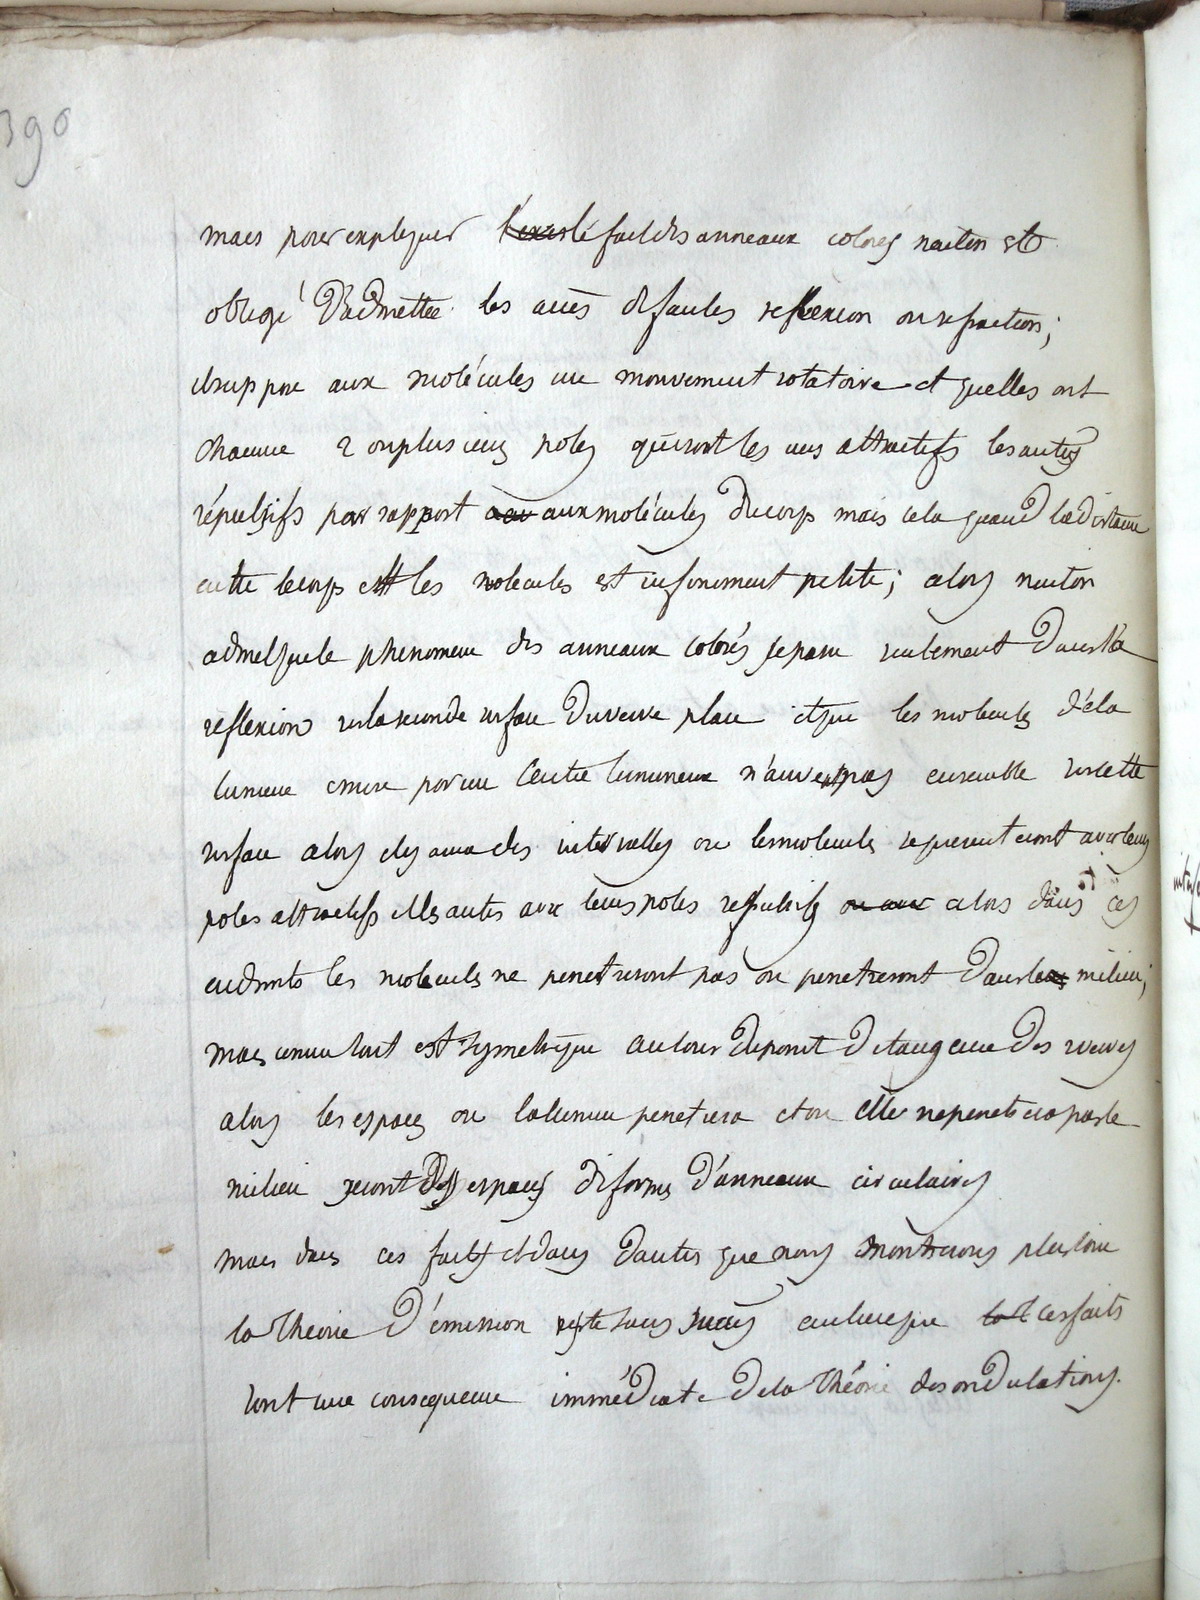 390
mais pour expliquer le fait des anneaux colorés neuton est
obligé d'admettre les accès de faciles reflexion ou refraction;
il suppose aux molécules un mouvement rotatoire et quelles ont
chacune 2 ou plusieurs poles qui sont les uns attractifs les autres
répulsifs par rapport aux molécules du corps mais cela quand la distance
entre le corps et les molecules est infiniment petite; alors neuton
admet que le phenomene des anneaux colorés se passe seulement dans la
reflexion sur la seconde surface du verre place et que les molecules de la
lumiere emise par un centre lumineux n'arrivent pas ensemble sur cette
surface alors il y aura des intervalles ou les molecules se presenteront avec leurs
poles attractifs et les autres avec leurs poles repulsifs alors dans ces
endroits les molecules ne penetreront pas ou penetreront dans le milieu;
mais comme tout est symetrique autour du point de tangence des verres
alors les espaces ou la lumiere penetrera et ou elle ne penetrera pas le
milieu seront des espaces de formes d'anneaux circulaires
mais dans ces faits et dans d'autres que nous montrerons plus loin
la theorie d'émission reste sans succès au lieu que ces faits
sont une consequence immédiate de la théorie des ondulations.